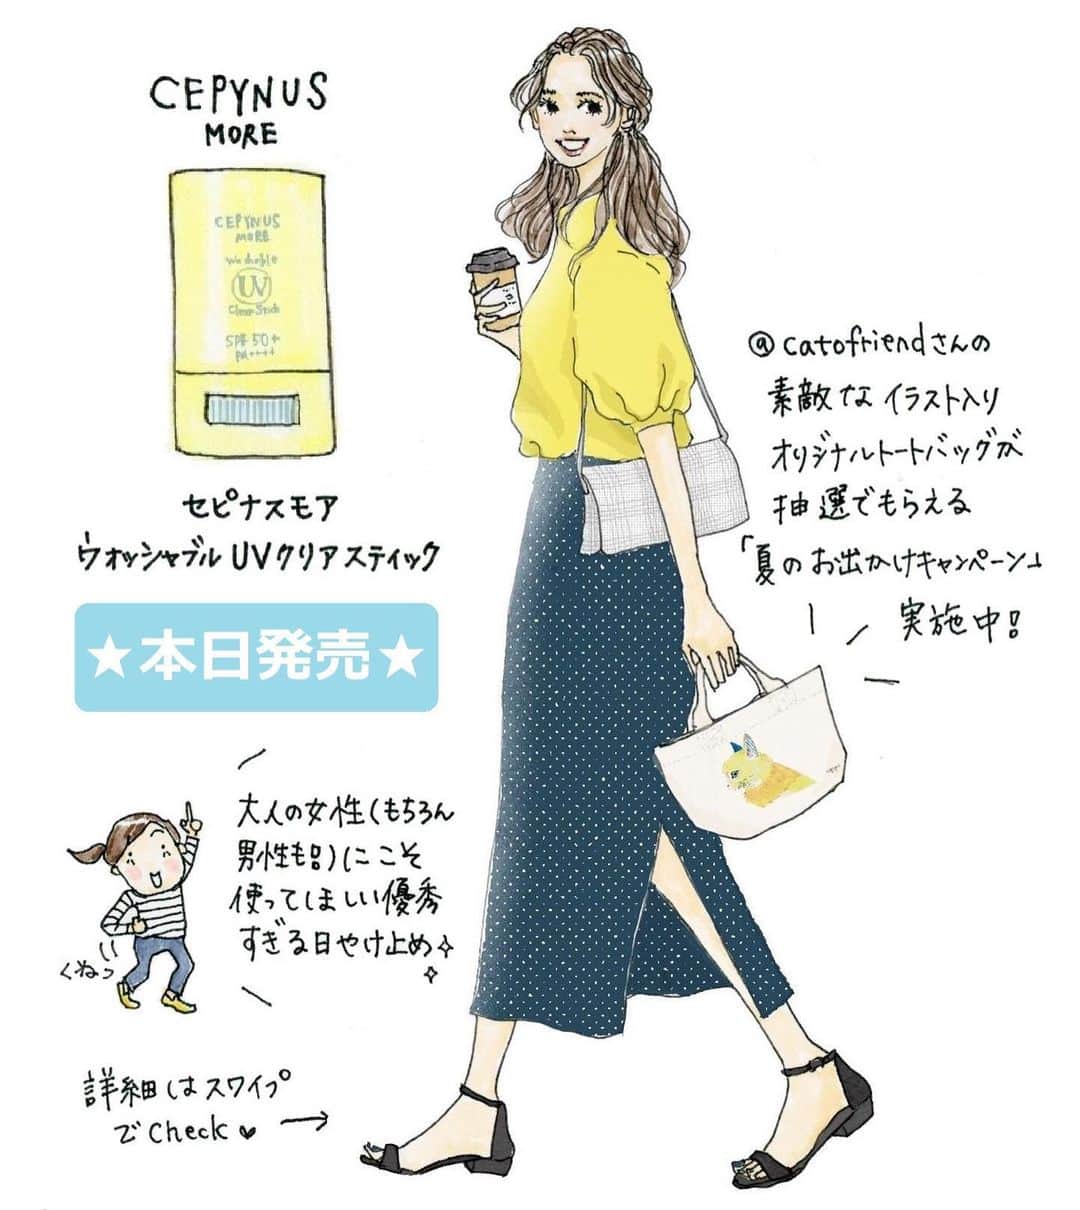 CEPYNUS
MORE
CEPYNUS
MORE
Washable
UV
Clear Stick
SPF 50+
PA++++
セピナスモア
ウォッシャブルUVクリアスティック
★本日発売★
@catofriendさんの
素敵なイラスト入り
オリジナルトートバッグが
抽選でもらえる
「夏のお出かけキャンペーン」
実施中!
大人の女性(もちろん
男性も!)にこそ
使ってほしい優秀
すぎる日やけ止め✧
くねっ
詳細はスワイプ
でCheck♥→